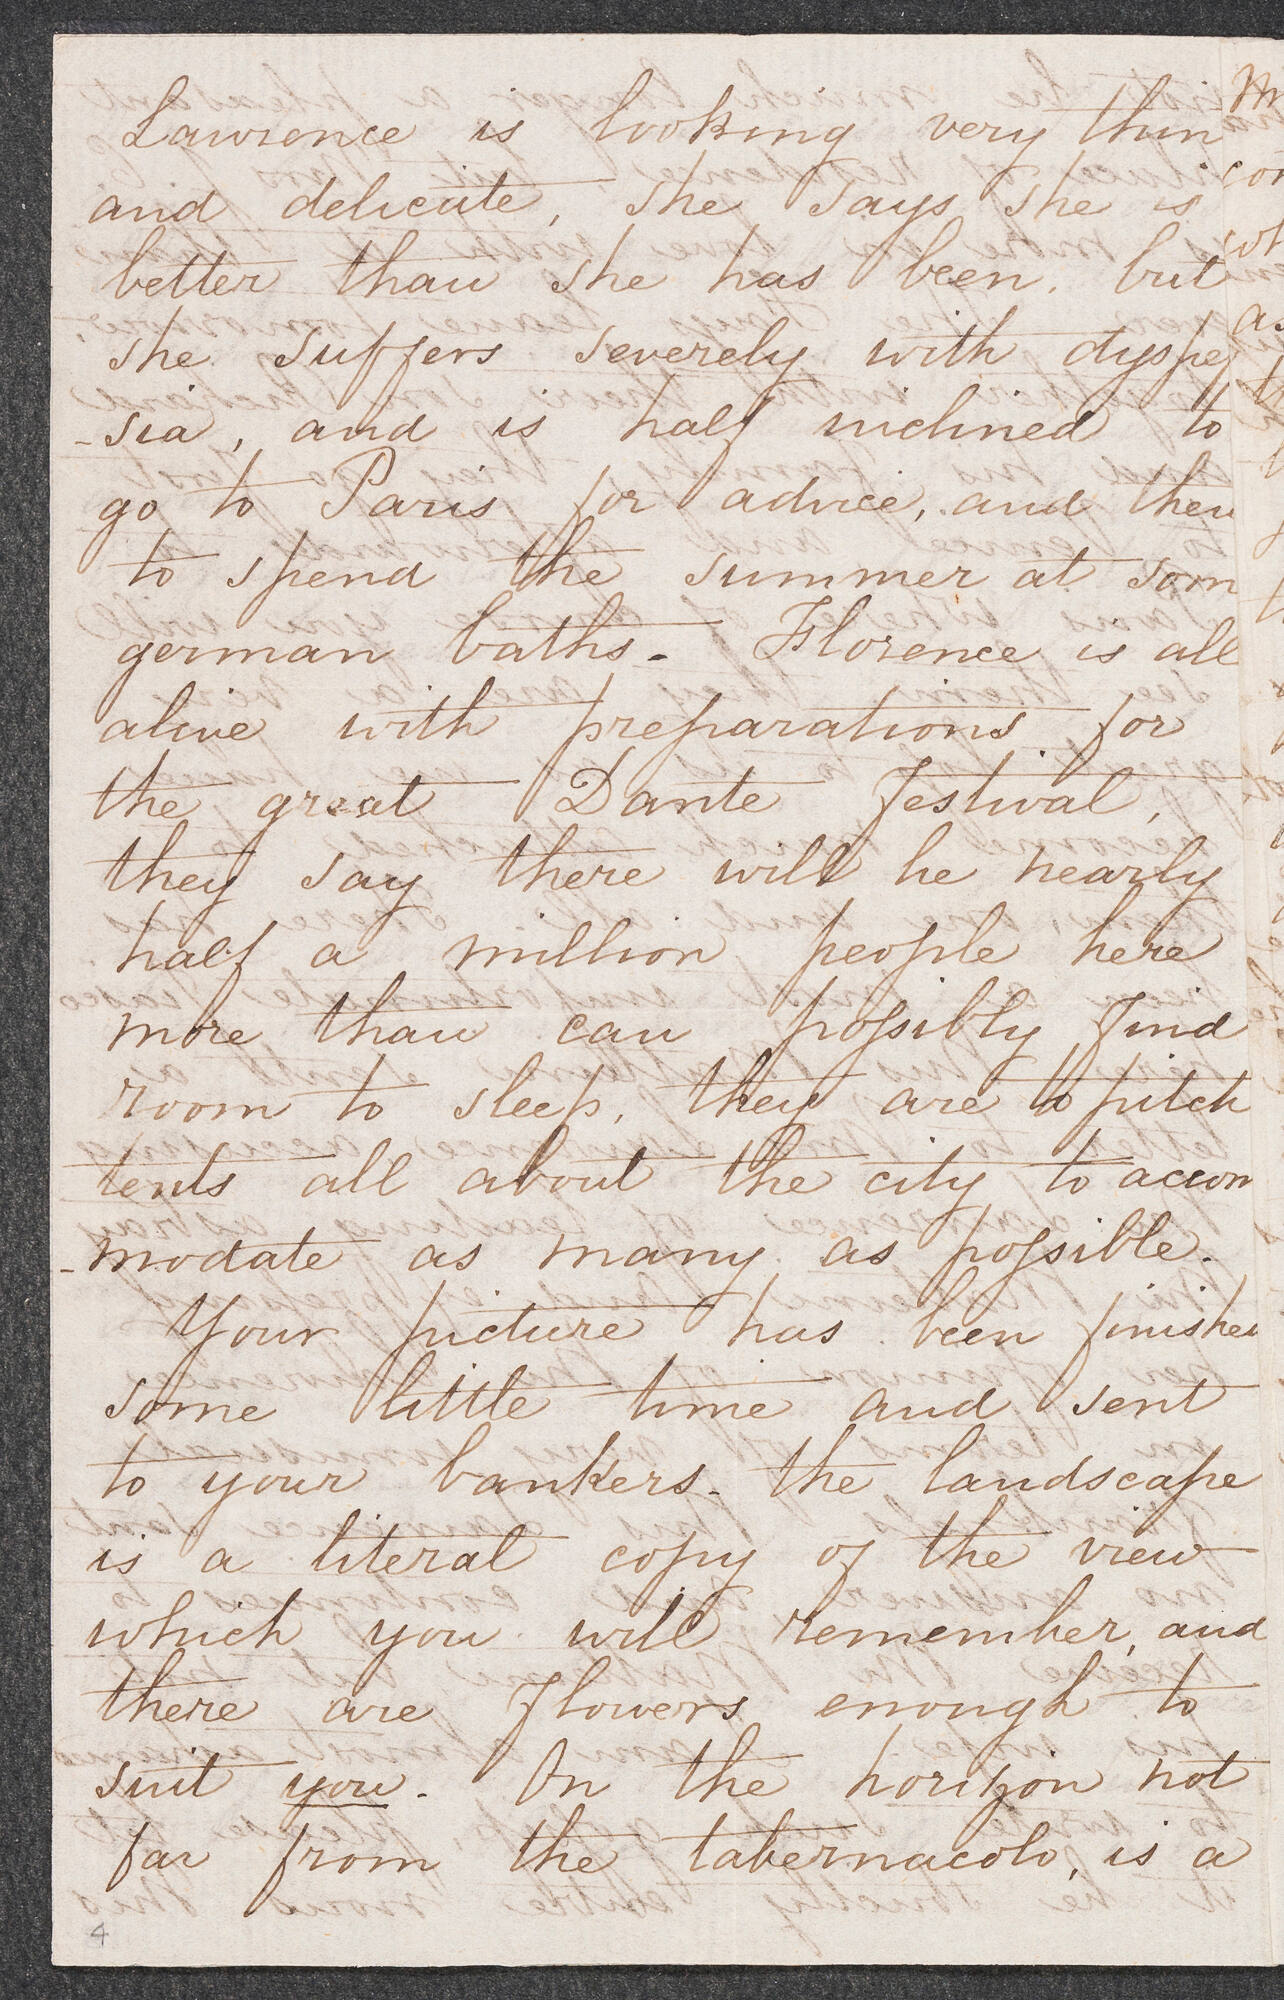 Lawrence is looking very thin
and delicate, she says she is
better than she has been. but
she suffers severely with dyspe
-sia, and is half inclined to
go to Paris for advice, and then
to spend the summer at som
german baths. Florence is all
alive with preparations for
the great Dante Festival,
they say there will be nearly
half a million people here
more than can possibly find
room to sleep, they are to pitch
tents all about the city to accom
-modate as many as possible.
Your picture has been finished
some little time and sent
to your bankers. the landscape
is a literal copy of the view
which you will remember, and
there are flowers enough to
suit you. On the horizon not
far from the tabernacolo, is a
4